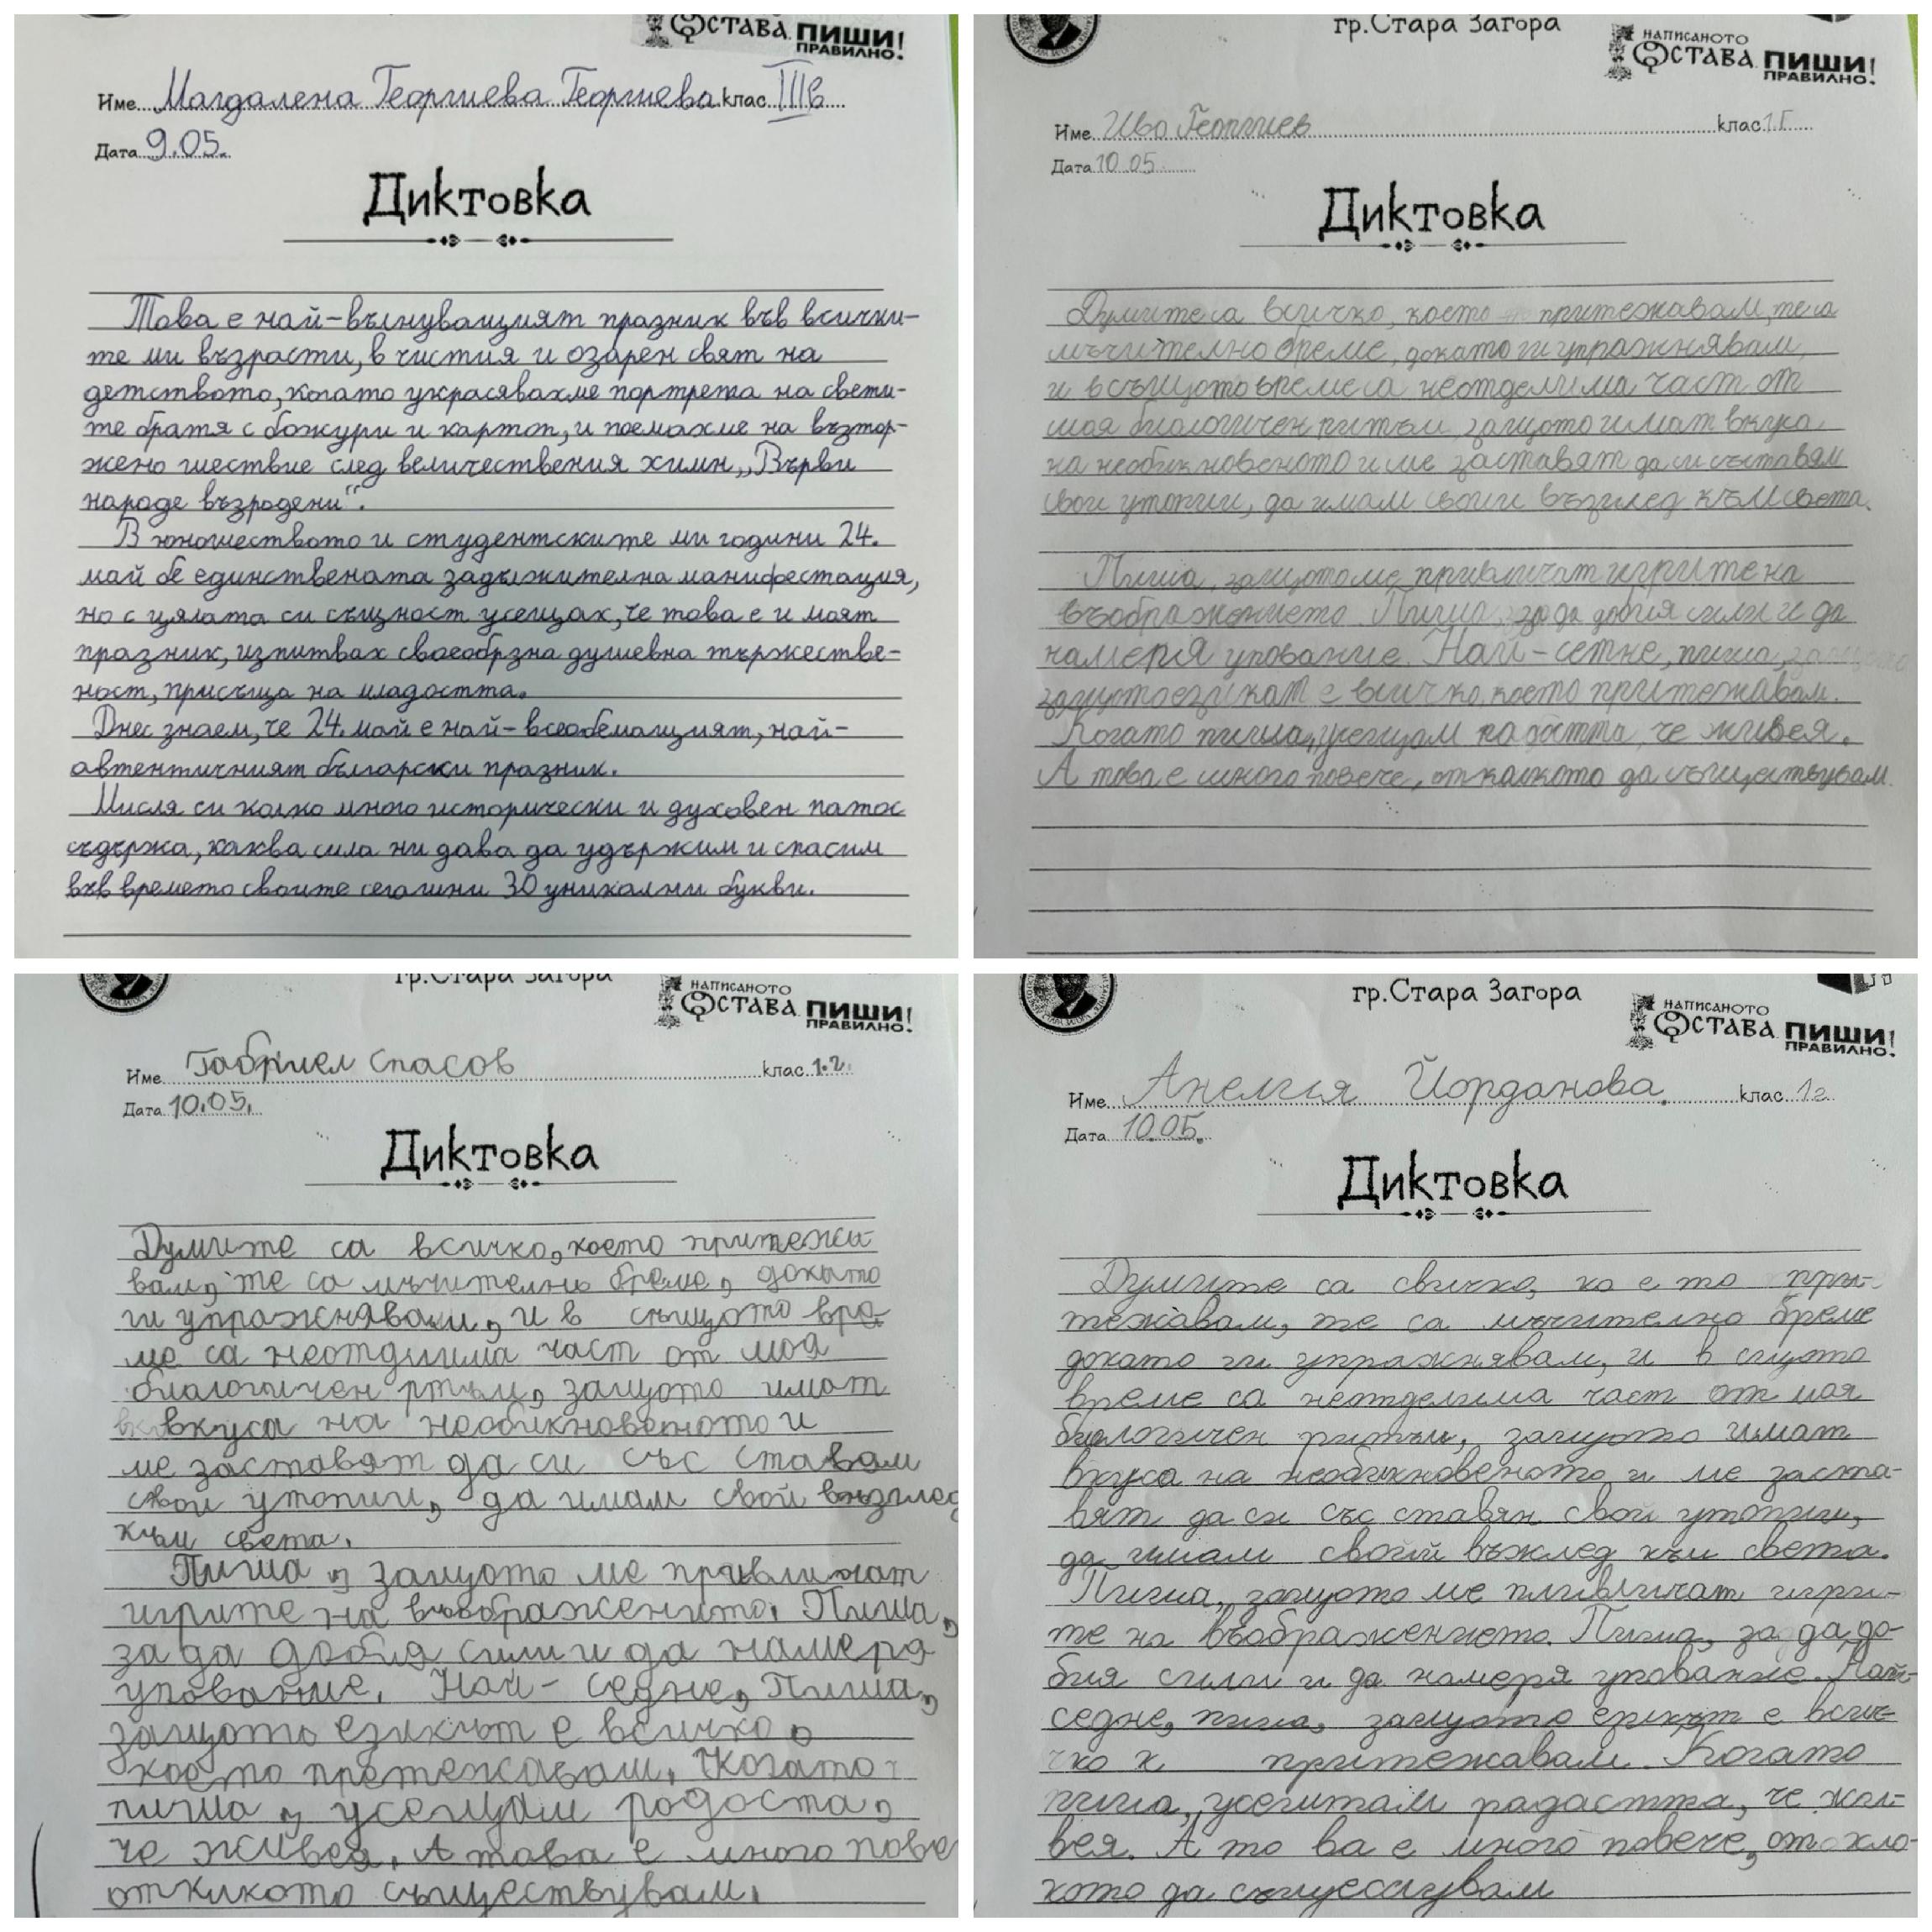 ОСТАВА ПИШИ!
ПРАВИЛНО!
Име Магдалена Георгиева Георгиева клас IIIв
Дата 9.05.
Диктовка
Това е най-вълнуващият празник във всички-
те ми възрасти, в чистия и озарен свят на
детството, когато украсявахме портрета на свети-
те братя с божури и картон, и поемахме на възтор-
жено шествие след величествения химн „Върви
народе възродени“.
В юношеството и студентските ми години 24.
май бе единствената задължителна манифестация,
но с цялата си същност усещах, че това е и моят
празник, изпитвах своеобрзна душевна тържестве-
ност, присъща на младостта.
Днес знаем, че 24. май е най-всеобемащият, най-
автентичният български празник.
Мисля си колко много исторически и духовен патос
съдържа, каква сила ни дава да удържим и спасим
във времето своите сегашни 30 уникални букви.
гр.Стара Загора
НАПИСАНОТО
ОСТАВА ПИШИ!
ПРАВИЛНО!
Име Иво Георгиев клас 1.Г
Дата 10.05
Диктовка
Думитеса всичко, което притежавам, теса
мъчително бреме, докато ги упражнявам,
и в същотовремеса неотделима част от
моя биологичен ритъм, защото имат вкуса
на необикновеното и ме заставят да си съставям
свои утопии, да имам своии възглед към света.
Пиша, защотоме привличат игрите на
въображението. Пиша, за да добия сили и да
намеря упование. Най-сетне, пиша,
защотоезикат е всичко, което притежавам.
Когато пиша, усещам радостта, че живея.
А това е много повече, отколкото да съществувам.
гр.Стара Загора
НАПИСАНОТО
ОСТАВА ПИШИ!
ПРАВИЛНО!
Име Габриел Спасов клас 1.г.
Дата 10.05.
Диктовка
Думите са всичко, което притежа-
вам, те са мъчително бреме, докато
ги упражнявам, и в същото вре-
ме са неотдима част от моя
биологичен ртъм, защото имат
вкуса на необикновеното и
ме заставят да си със ставам
свои утопии, да имам свой възглед
към света.
Пиша, защото ме привличат
игрите на въображението. Пиша,
за да добия сили и да намеря
упование. Най-седне, Пиша,
защото езикът е всичко,
което претежавам. Когато
пиша, усещам радоста,
че живея. А това е много пове
откикото съществувам.
гр.Стара Загора
НАПИСАНОТО
ОСТАВА ПИШИ!
ПРАВИЛНО!
Име Анелия Йорданова. клас 1г
Дата 10.05.
Диктовка
Думите са свичко, ко е то при-
тежавам, те са мъчително бреме
докато ги упражнявам, и в същото
време са неотделима част от моя
биологичен ритъм, защото имат
вкуса на необикновеното и ме заста-
вят да си със ставян свои утопии,
да имам своий въжлед към света.
Пиша, защото ме пливличат игри-
те на въображението. Пиша, за да до-
бия сили и да намеря упование. Най-
седне, пиша, защото езикът е всич-
чко к притежавам. Когато
пиша, усештам радастта, че жи-
вея. А то ва е много повече, от кло-
кото да